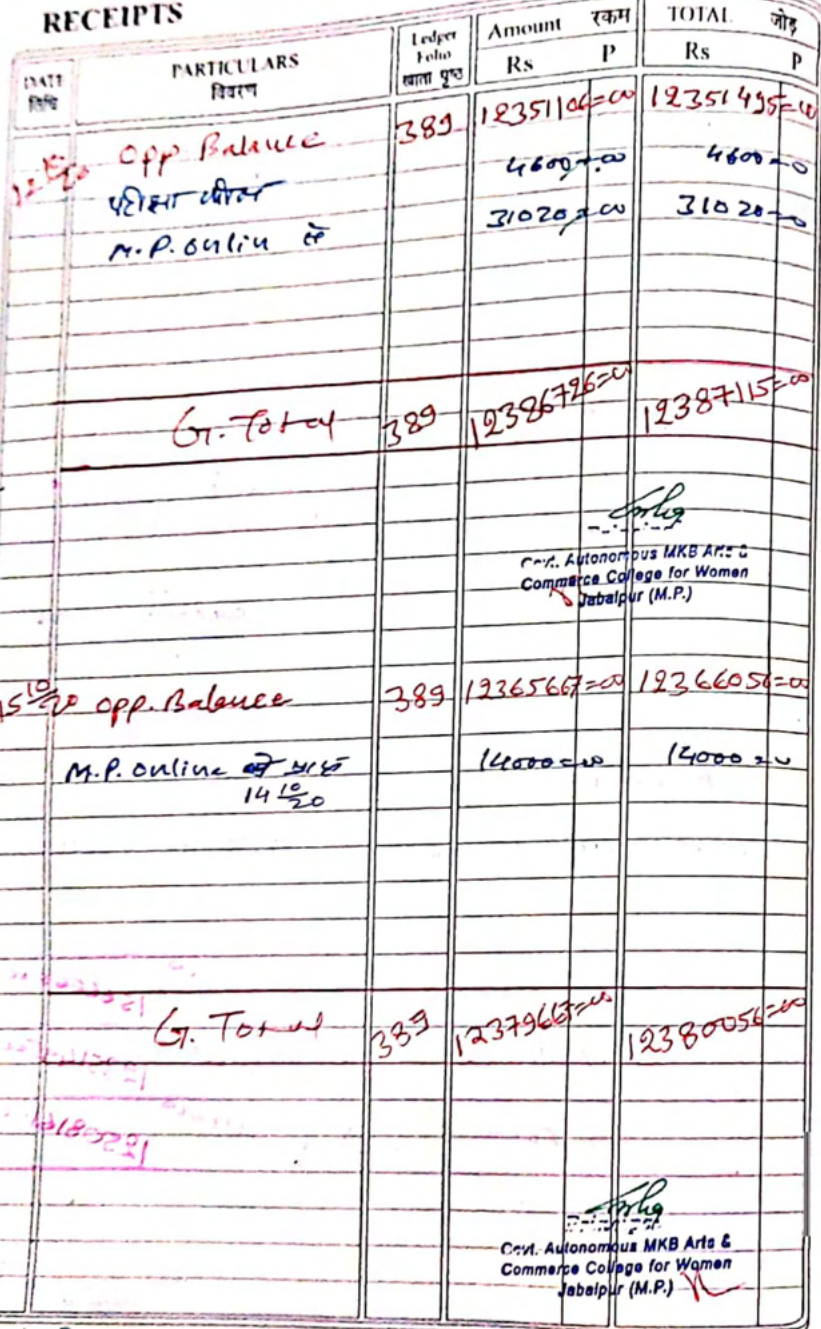 RECEIPTS
DATE PARTICULARS Ledger Folio Amount रकम TOTAL जोड़
तिथि विवरण खाता पृष्ठ Rs P Rs P
12 10/20 Opp Balance 389 12351106=00 12351495=00
परीक्षा 4600=00 4600=0
M.P. onlin से 31020=00 31020=0
G. Total 389 12386726=00 12387115=00
Govt. Autonomous MKB Arts &
Commerce College for Women
Jabalpur (M.P.)
15 10/20 opp. Balance 389 12365667=00 12366056=00
M.P. online से प्राप्त 14000=00 14000=0
14 10/20
G. Total 389 12379667=00 12380056=00
Principal
Govt. Autonomous MKB Arts &
Commerce College for Women
Jabalpur (M.P.)